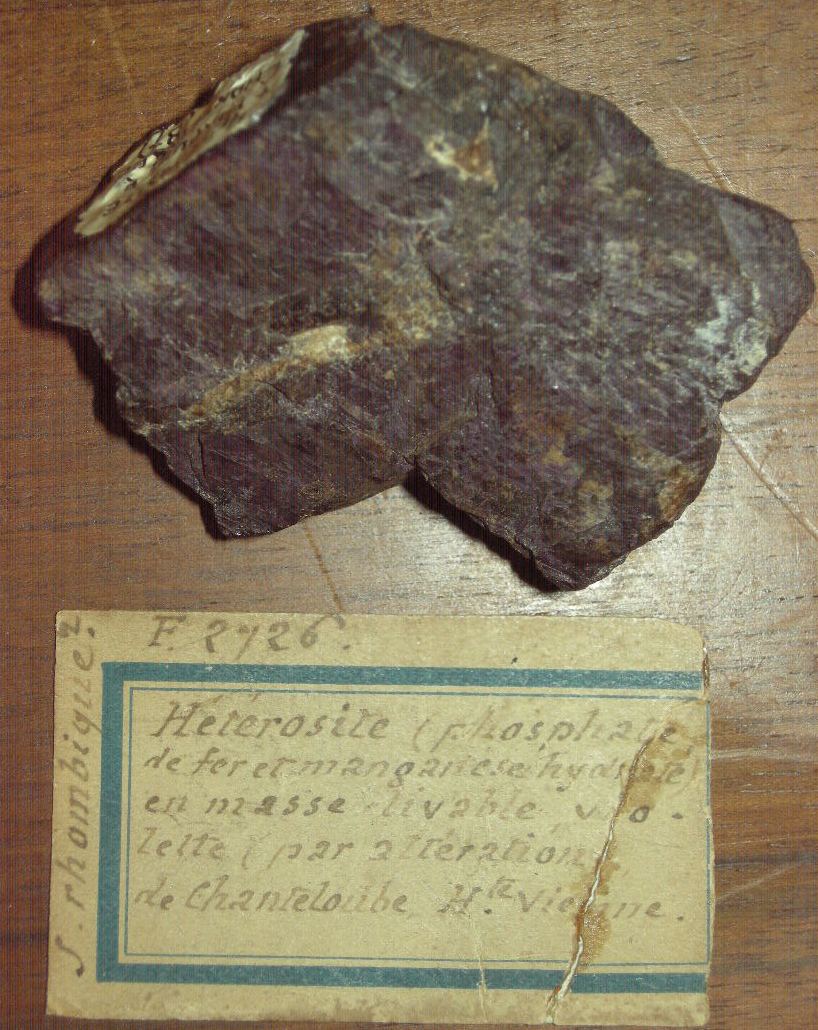 F. 2726.
S. rhombique?
Hétérosite (phosphate
de fer et manganèse hydraté)
en masse clivable, vio-
lette (par altération)
de Chanteloube, H.te Vienne.